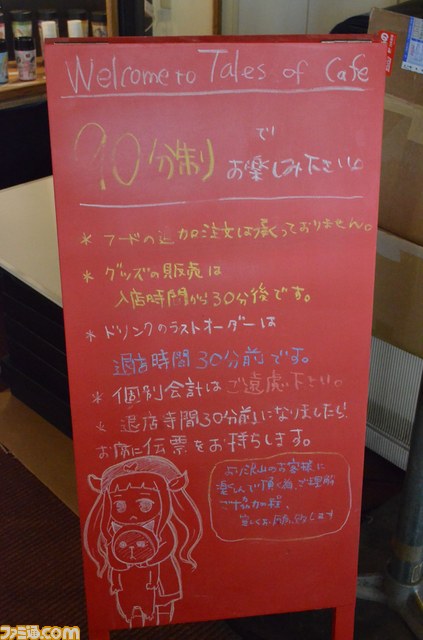 Welcome to Tales of Cafe
90分制りで
お楽しみ下さい。
* フードの追加注文は承っておりません。
* グッズの販売は
入店時間から30分後です。
* ドリンクのラストオーダーは
退店時間30分前です。
* 個別会計はご遠慮下さい。
* 退店時間30分前になりましたら、
お席に伝票をお持ちします。
沢山のお客様に
楽しんで頂く為、ご理解
ご協力の程、
お願い致します
ファミ通.com